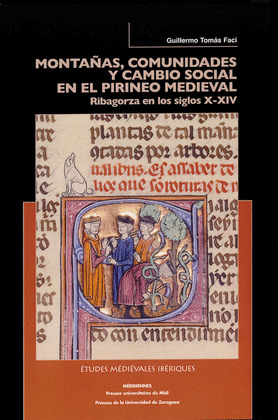 Guillermo Tomás Faci
MONTAÑAS, COMUNIDADES
Y CAMBIO SOCIAL
EN EL PIRINEO MEDIEVAL
Ribagorza en los siglos X-XIV
plantas de tal manas
çadas por arbores.
ualibus. Es assaber de
ÉTUDES MÉDIÉVALES IBÉRIQUES
MÉRIDIENNES
Presses universitaires du Midi
Prensas de la Universidad de Zaragoza